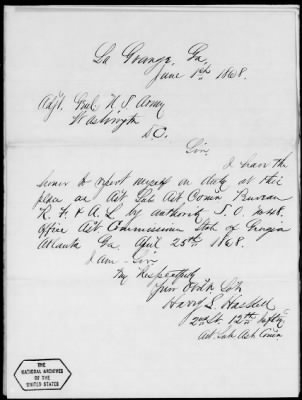 La Grange, Ga,
June 1st 1868.
Adjt. Genl U. S. Army
Washington
D.C.
Sir,
I have the
honor to report myself on duty at this
place as Act. Sub Ast Comr Bureau
R. F. & A. L. by authority S. O.
Office Ast Commissioner State of Georgia
Atlanta Ga, April 25th 1868.
I am Sir
Very Respectfully
Your Obdt Svt
Harry L. Haskell
2nd Lt. 12th Infty
Act. Sub Ast. Comr
THE
NATIONAL ARCHIVES
OF THE
UNITED STATES